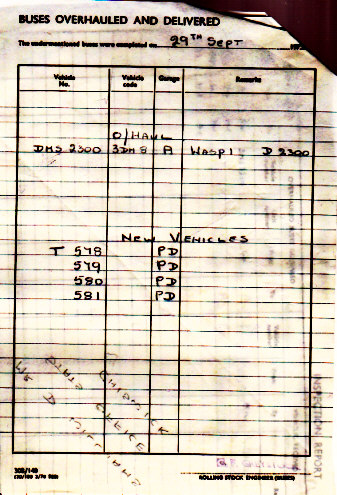 BUSES OVERHAULED AND DELIVERED
The undermentioned buses were completed on 29TH SEPT 197
Vehicle No. Vehicle code Garage Remarks
O/HAUL
DMS 2300 3DM 8 A WASP 1 D 2300
NEW VEHICLES
T 578 PD
579 PD
580 PD
581 PD
CHISWICK
OFFICE
MR D WILLIAMS
INSPECTION REPORT
ROLLING STOCK ENGINEER (BUSES)